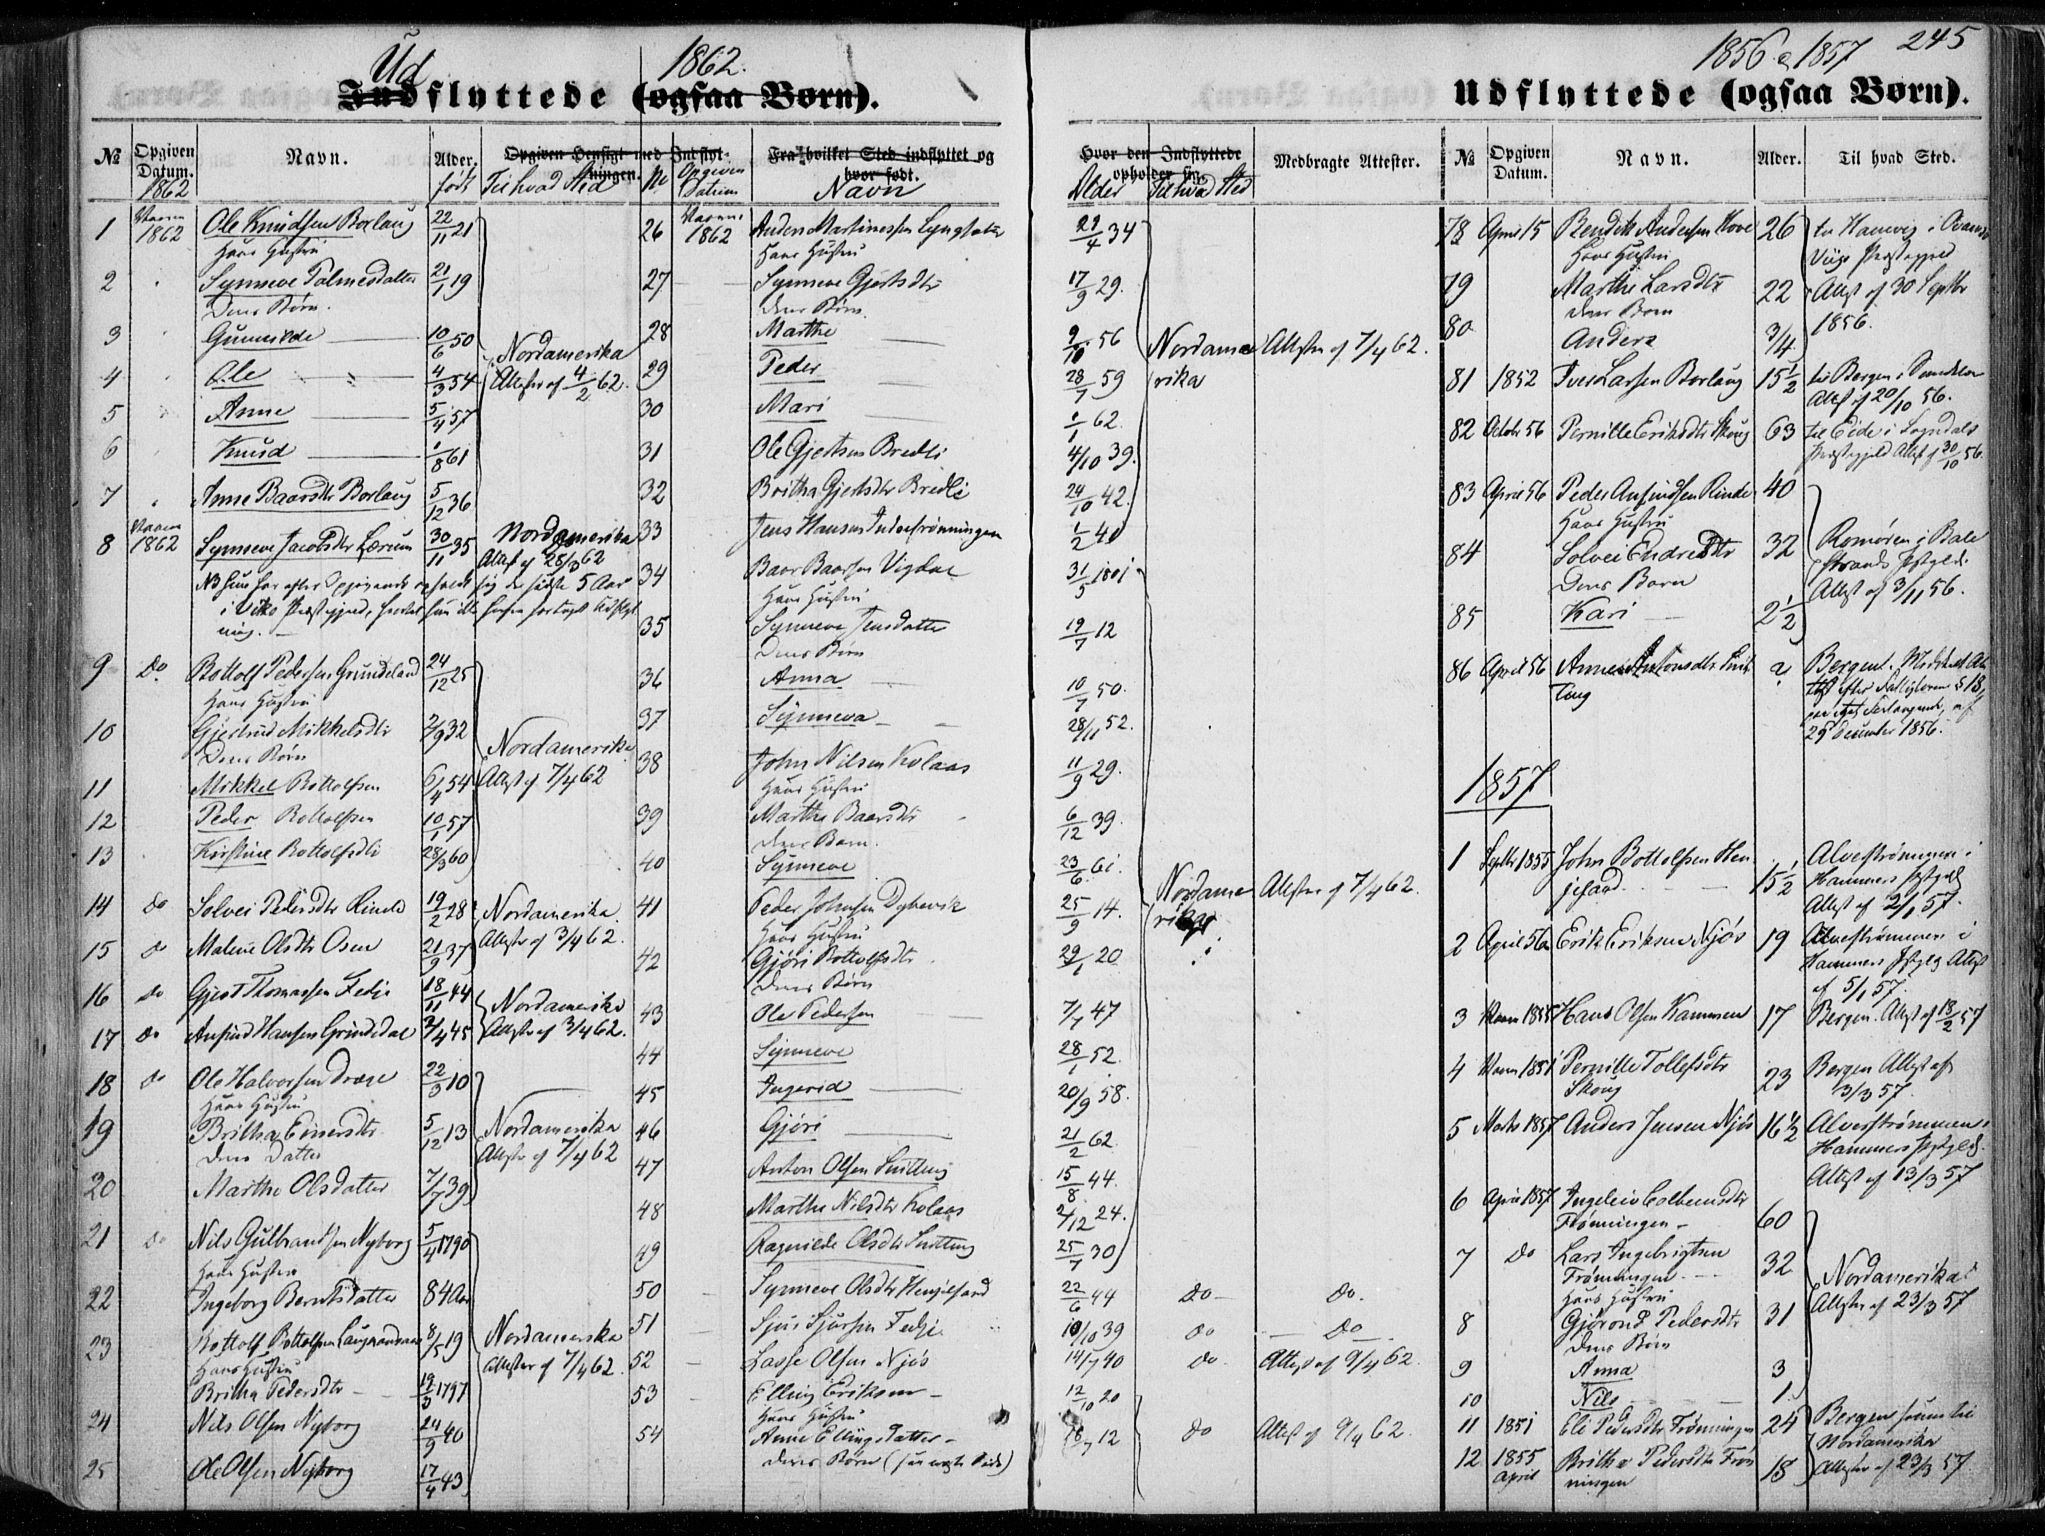 Ud 1862.
Indflyttede (ogsaa Børn).
№ Opgiven Datum. 1862 Navn. Alder. født Opgiven Hensigt med Indflytningen. Til hvad Sted
№ Opgiven Datum Fra hvilket Sted indflyttet og hvor født. Navn
1 Vaaren 1862 Ole Knudsen Borlaug 22/11 21
Hans Hustru
2 Synneve Palmesdatter 21/1 19
Deres Børn.
3 Gunnilde 10/6 50 Nordamerika
4 Ole 4/3 54 Attester af 4/2 62.
5 Anne 5/4 57
6 Knud 1/8 61
7 Anne Baardsdtr Borlaug 5/12 36
8 Vaaren 1862 Synneve Jacobsdtr Lærum 30/11 35 Nordamerika
Attest af 28/3 62
NB hun har efter Opgivende opholdt sig de sidste 5 Aar
i Viks Præstegjeld,
9 Do Bottolf Pedersen Grindeland 24/12 25
Hans Hustru
10 Gjertrud Mikkelsdtr 2/9 32 Nordamerika
Deres Børn
11 Mikkel Bottolfsen 6/4 54 Attest af 7/4 62
12 Peder Bottolfsen 10/1 57
13 Kirstine Bottolfsdtr 28/3 60
14 do Solvei Pedersdtr Rinde 19/2 28 Nordamerika.
15 do Malene Olsdtr Osen 21/9 37 Attester af 3/4 62.
16 do Gjert Thomassen Fedje 18/11 44 Nordamerika
17 do Ansfind Hansen Grindedal 2/4 45 Attester af 3/4 62.
18 do Ole Halvorsen Dræge 22/3 10
Hans Hustru
19 Britha Einersdtr 5/12 13 Nordamerika
Deres Datter Attester af 7/4 62
20 Marthe Olsdatter 7/7 39
21 do Nils Gulbrandsen Nyborg 5/4 1790
Hans Hustru
22 Ingeborg Berntsdatter 84 Aar
23 Bottolf Bottolfsen 8/5 19 Nordamerika
Hans Hustru Attester af 7/4 62.
Britha Pedersdtr 19/3 1797
24 Nils Olsen Nyborg 24/9 40
25 Ole Olsen Nyborg 17/4 43
26 Vaaren 1862 Anders Martinessen
Hans Hustru
27 Synneve Gjertsdtr
Deres Børn.
28 Marthe
29 Peder
30 Mari
31 Ole Gjertsen Bredli
32 Britha Gjertsdtr Bredli
33 Jens Hansen Inderfrønningen
34 Baar Baarsen Vigdal
Hans Hustru
35 Synneve Jensdatter
Deres Børn
36 Anna
37 Synneva
38 John Nilsen Kolaas
Hans Hustru
39 Marthe Baarsdtr
Deres Barn.
40 Synneve
41 Peder Johnsen Dybevik
Hans Hustru
42 Gjøri Bottolfsdtr
Deres Børn
43 Ole Pedersen
44 Synneve
45 Ingerid
46 Gjøri
47 Anton Olsen Suttung
48 Marthe Nilsdtr Kolaas
49 Ragnilde Olsdtr Suttung
50 Synneve Olsdtr Henjesand
51 Sjur Sjursen Fedje
52 Lasse Olsen Njøs
53 Elling Eriksen
Hans Hustru
54 Anne Ellingsdatter
Deres Børn (see næste Side)
1856 & 1857 245
Udflyttede (ogsaa Børn).
Hvor den Indflyttede opholder sig. Alder Til hvad Sted Medbragte Attester. № Opgiven Datum. Navn. Alder. Til hvad Sted.
21/4 34
17/9 29.
9/10 56 Nordame Attester af 7/4 62.
28/7 59 rika
1/1 62.
4/10 39.
24/10 42.
1/2 41
31/5 1801
19/7 12
10/7 50.
28/11 52.
11/9 29.
6/12 39.
23/6 61. Nordame Attester af 7/4 62.
25/9 14. rika
29/1 20
7/7 47
28/1 52.
20/9 58.
21/2 62.
15/8 44.
2/12 24.
25/7 30
22/6 44 do do.
10/10 39 do Do
14/7 40 do. Attest af 9/4 62.
12/10 20
8/7 12 do Attest af 9/4 62.
78 April 15 Bendik Andersen Hove 26
Hans Hustru Viigs Præstegjeld
79 Marthe Larsdtr 22 Attest af 30 Septbr
Deres Barn 1856.
80 Anders 3/4
81 1852 Iver Larsen Borlaug 15 1/2 til Bergen
Attest af 20/10 56.
82 Octobr 56 Pernille Eriksdtr Skoug 63 til Eide i Sogndals
Præstegjeld Attest af 30/10 56.
83 April 56 Peder Ansfindsen Rinde 40
Hans Hustru
84 Solvei Endresdtr 32 Romøren i Bale
Deres Barn strands Præstgjld.
85 Kari 2 1/2 Attest af 3/11 56.
86 April 56 Anne Antonsdtr Sut
tung Bergen.
25 December 1856.
1857
1 Septbr 1855 John Bottolfsen Hen 15 1/2 Alvestrømmen i
jesand. Hammers Præstgjld
Attest af 2/1 57.
2 April 56 Erik Eriksen Njøs 19 Alvestrømmen i
Hammers Præstgjld Attest
af 5/1 57.
3 Vaaren 1855 Hans Olsen Kammen 17 Bergen. Attest af 18/2 57
4 Vaaren 1851 Pernille Tollefsdtr 23 Bergen Attest af
Skoug 3/3 57.
5 Marts 1857 Anders Jensen Njøs 16 1/2 Alvestrømmen i
Hammers Præstgjld.
Attest af 13/3 57
6 April 1857 Ingeleiv Colbensdtr
Frønningen 60
7 Do Lars Ingebrigtsen 32
Frønningen. Nordamerika
Hans Hustru Attester af 23/3 57
8 Gjørond Pedersdtr 31
Deres Børn
9 Anna 3
10 Nils 1.
11 1851 Eli Pedersdtr Frønningen 24 Bergen senere til
Nordamerika
12 1855 April Britha Pedersdtr Frøn 18 Attester af 23/3 57
ningen